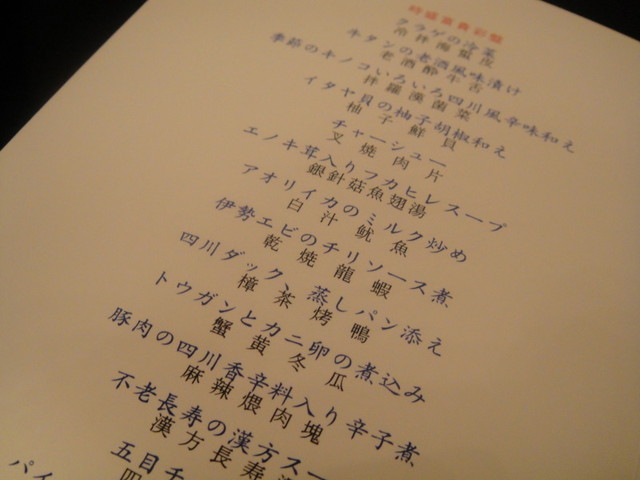 時鮮富貴彩盤
クラゲの冷菜
冷拌海蜇皮
牛タンの老酒風味漬け
老酒酔牛舌
季節のキノコいろいろ四川風辛味和え
拌羅漢菌菜
イタヤ貝の柚子胡椒和え
柚子鮮貝
チャーシュー
叉焼肉片
エノキ茸入りフカヒレスープ
銀針菇魚翅湯
アオリイカのミルク炒め
白汁魷魚
伊勢エビのチリソース煮
乾焼龍蝦
四川ダック、蒸しパン添え
樟茶烤鴨
トウガンとカニ卵の煮込み
蟹黄冬瓜
豚肉の四川香辛料入り辛子煮
麻辣煨肉塊
不老長寿の漢方スー
漢方長寿
五目チ
四
パイ